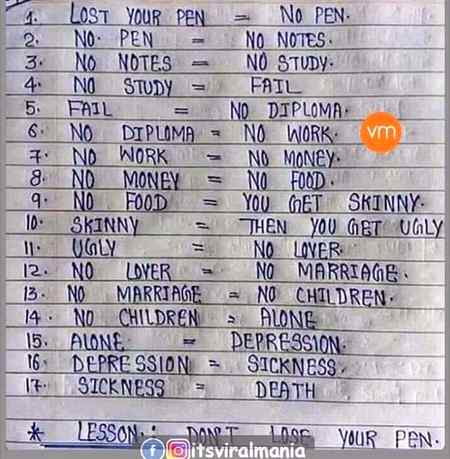 1. LOST YOUR PEN = NO PEN.
2. NO. PEN = NO NOTES.
3. NO NOTES = NO STUDY.
4. NO STUDY = FAIL
5. FAIL = NO DIPLOMA.
6. NO DIPLOMA = NO WORK.
vm
7. NO WORK = NO MONEY.
8. NO MONEY = NO FOOD.
9. NO FOOD = YOU GET SKINNY.
10. SKINNY = THEN YOU GET UGLY
11. UGLY = NO LOVER.
12. NO LOVER = NO MARRIAGE.
13. NO MARRIAGE = NO CHILDREN.
14. NO CHILDREN = ALONE
15. ALONE = DEPRESSION.
16. DEPRESSION = SICKNESS.
17. SICKNESS = DEATH
* LESSON: DON'T LOSE YOUR PEN.
itsviralmania